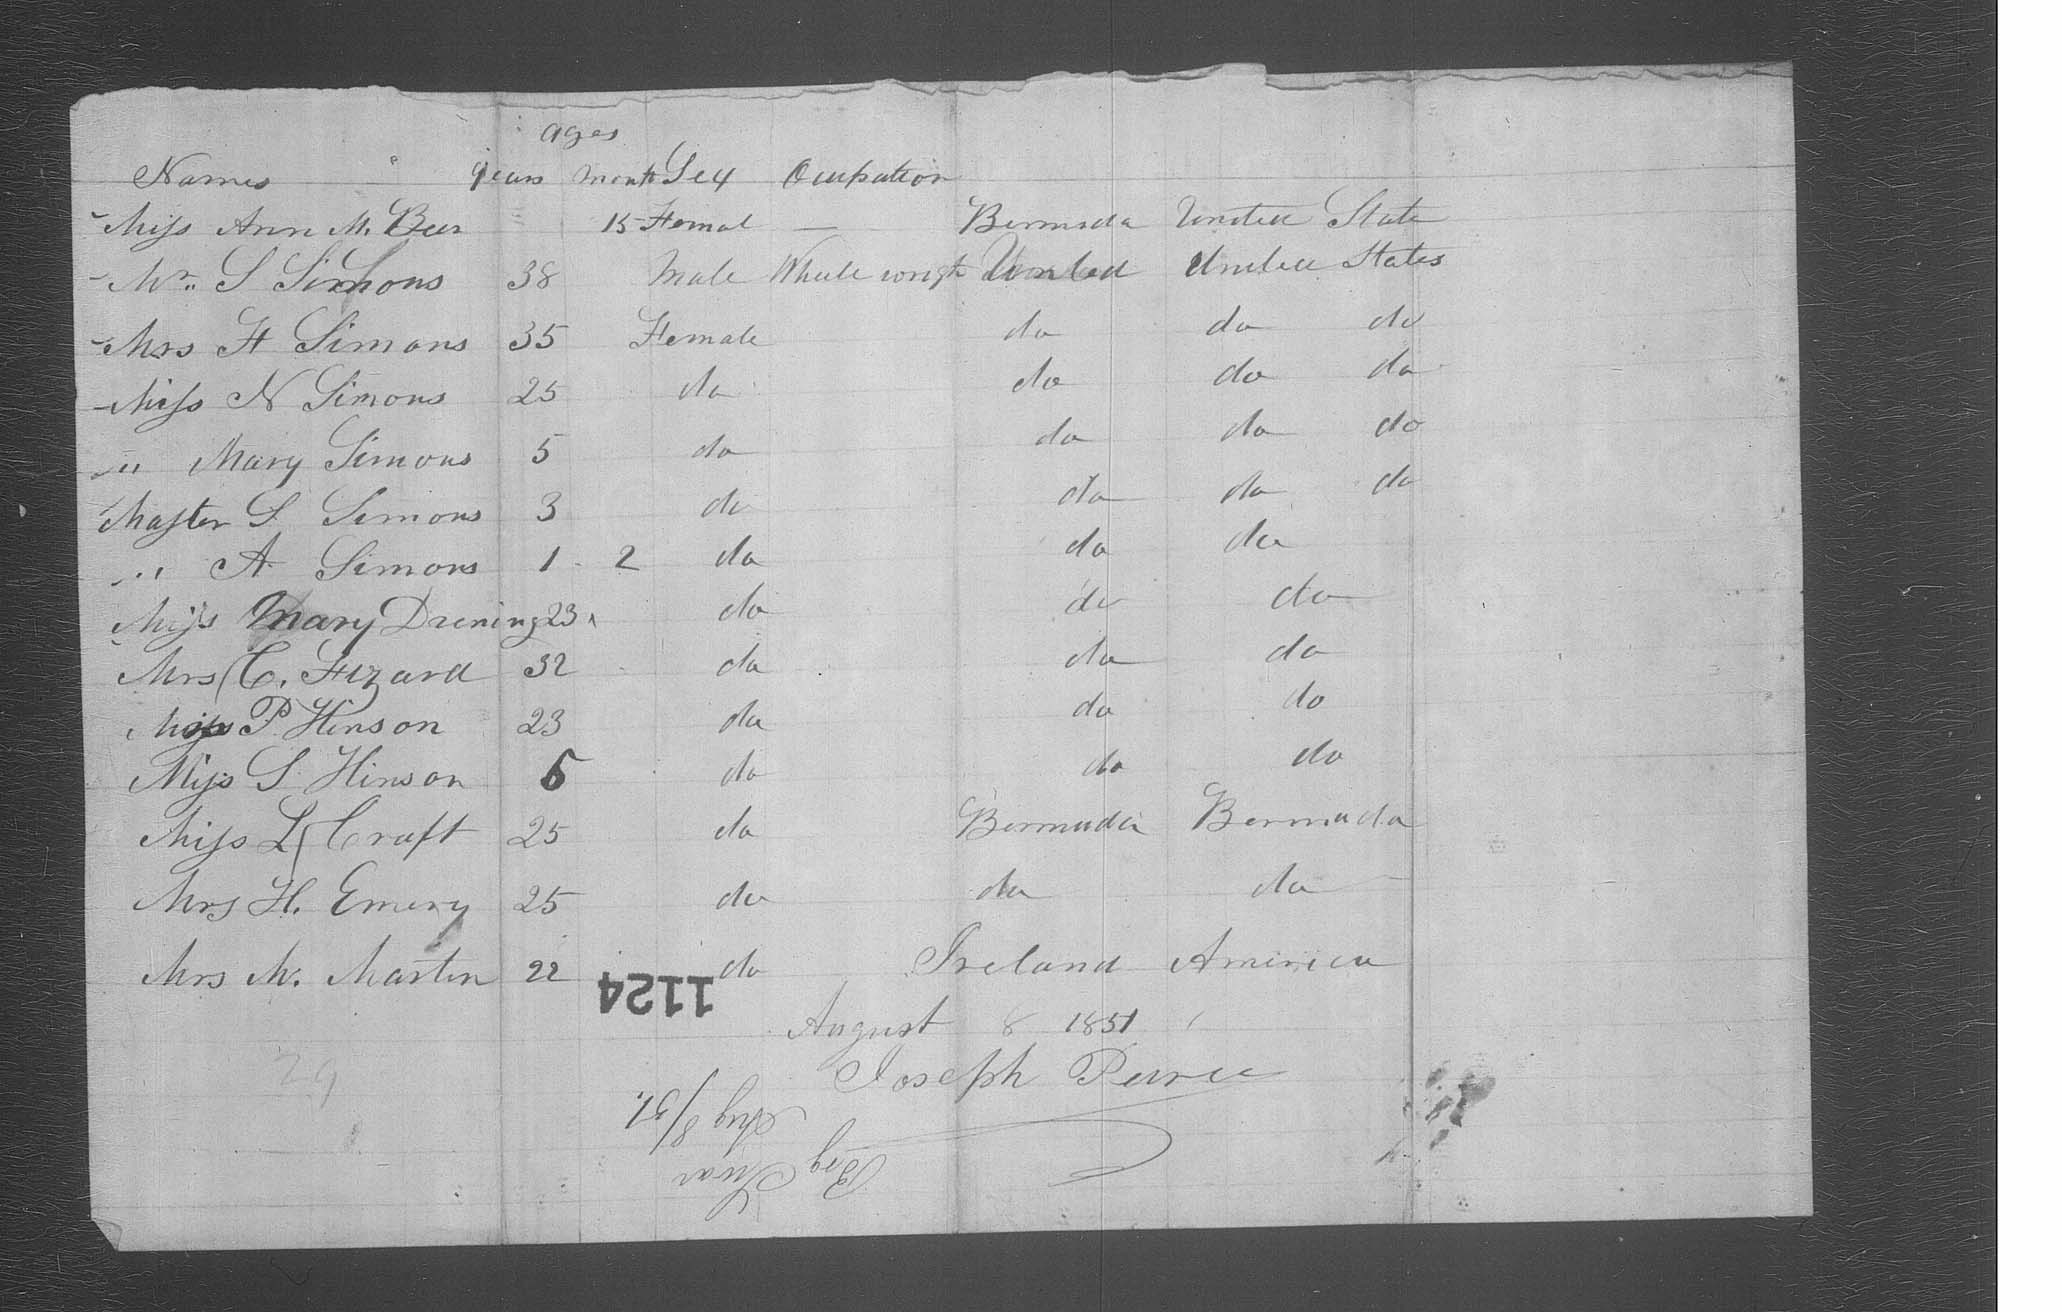 ages
Names years month Sex Ocupation
Miss Ann M. Beer 15 Femal — Bermuda United State
Mr. S Simons 38 Male Wheele wright United United States
Mrs H Simons 35 Female do do do
Miss N Simons 25 do do do do
" Mary Simons 5 do do do do
Master S Simons 3 do do do do
" A Simons 1 2 do do do
Miss Mary Drening 23 do do do
Mrs C. Fuzard 32 do do do
Miss P. Hinson 23 do do do
Miss S Hinson 5 do do do
Miss L Craft 25 do Bermuda Bermuda
Mrs H. Emery 25 do do do
Mrs M. Martin 22 do Ireland America
1124
August 8 1851
Joseph Pearce
29
Aug 8/51.
Brig